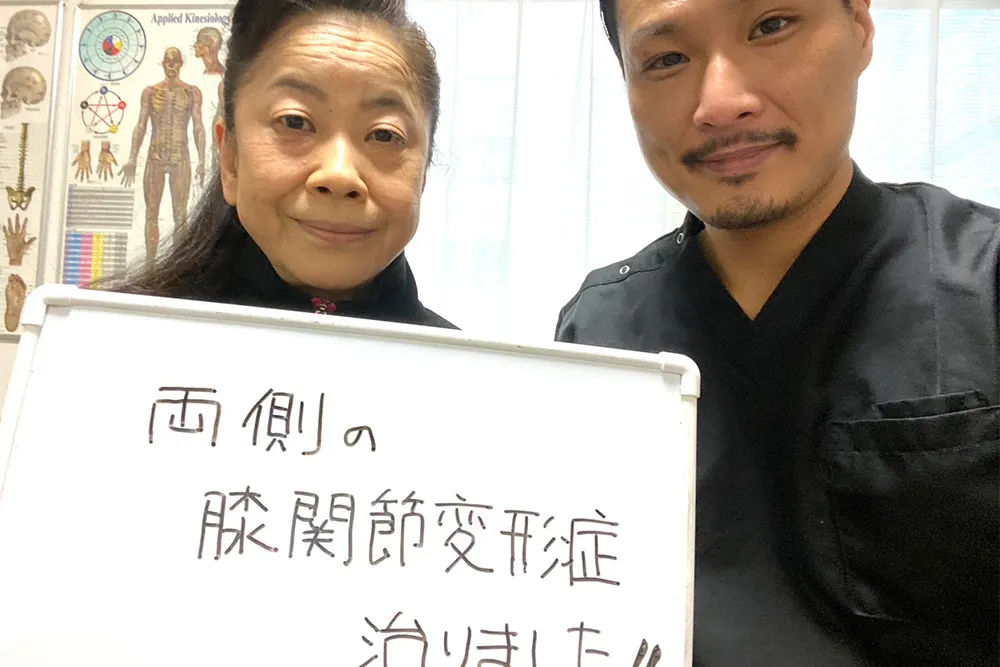 Applied Kinesiology
両側の
膝関節変形症
治りました!!